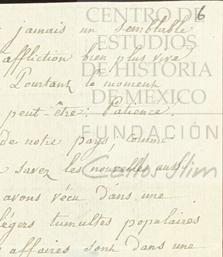 6
CENTRO DE
ESTUDIOS
DE HISTORIA
DE MÉXICO
FUNDACIÓN
Carlos Slim
jamais un semblable
affliction bien plus vive
Pourtant le moment
peut-être: Patience!
de notre pays, comme
savez les nouvelles aussi
avons vécu dans une
légers tumultes populaires
affaires sont dans une